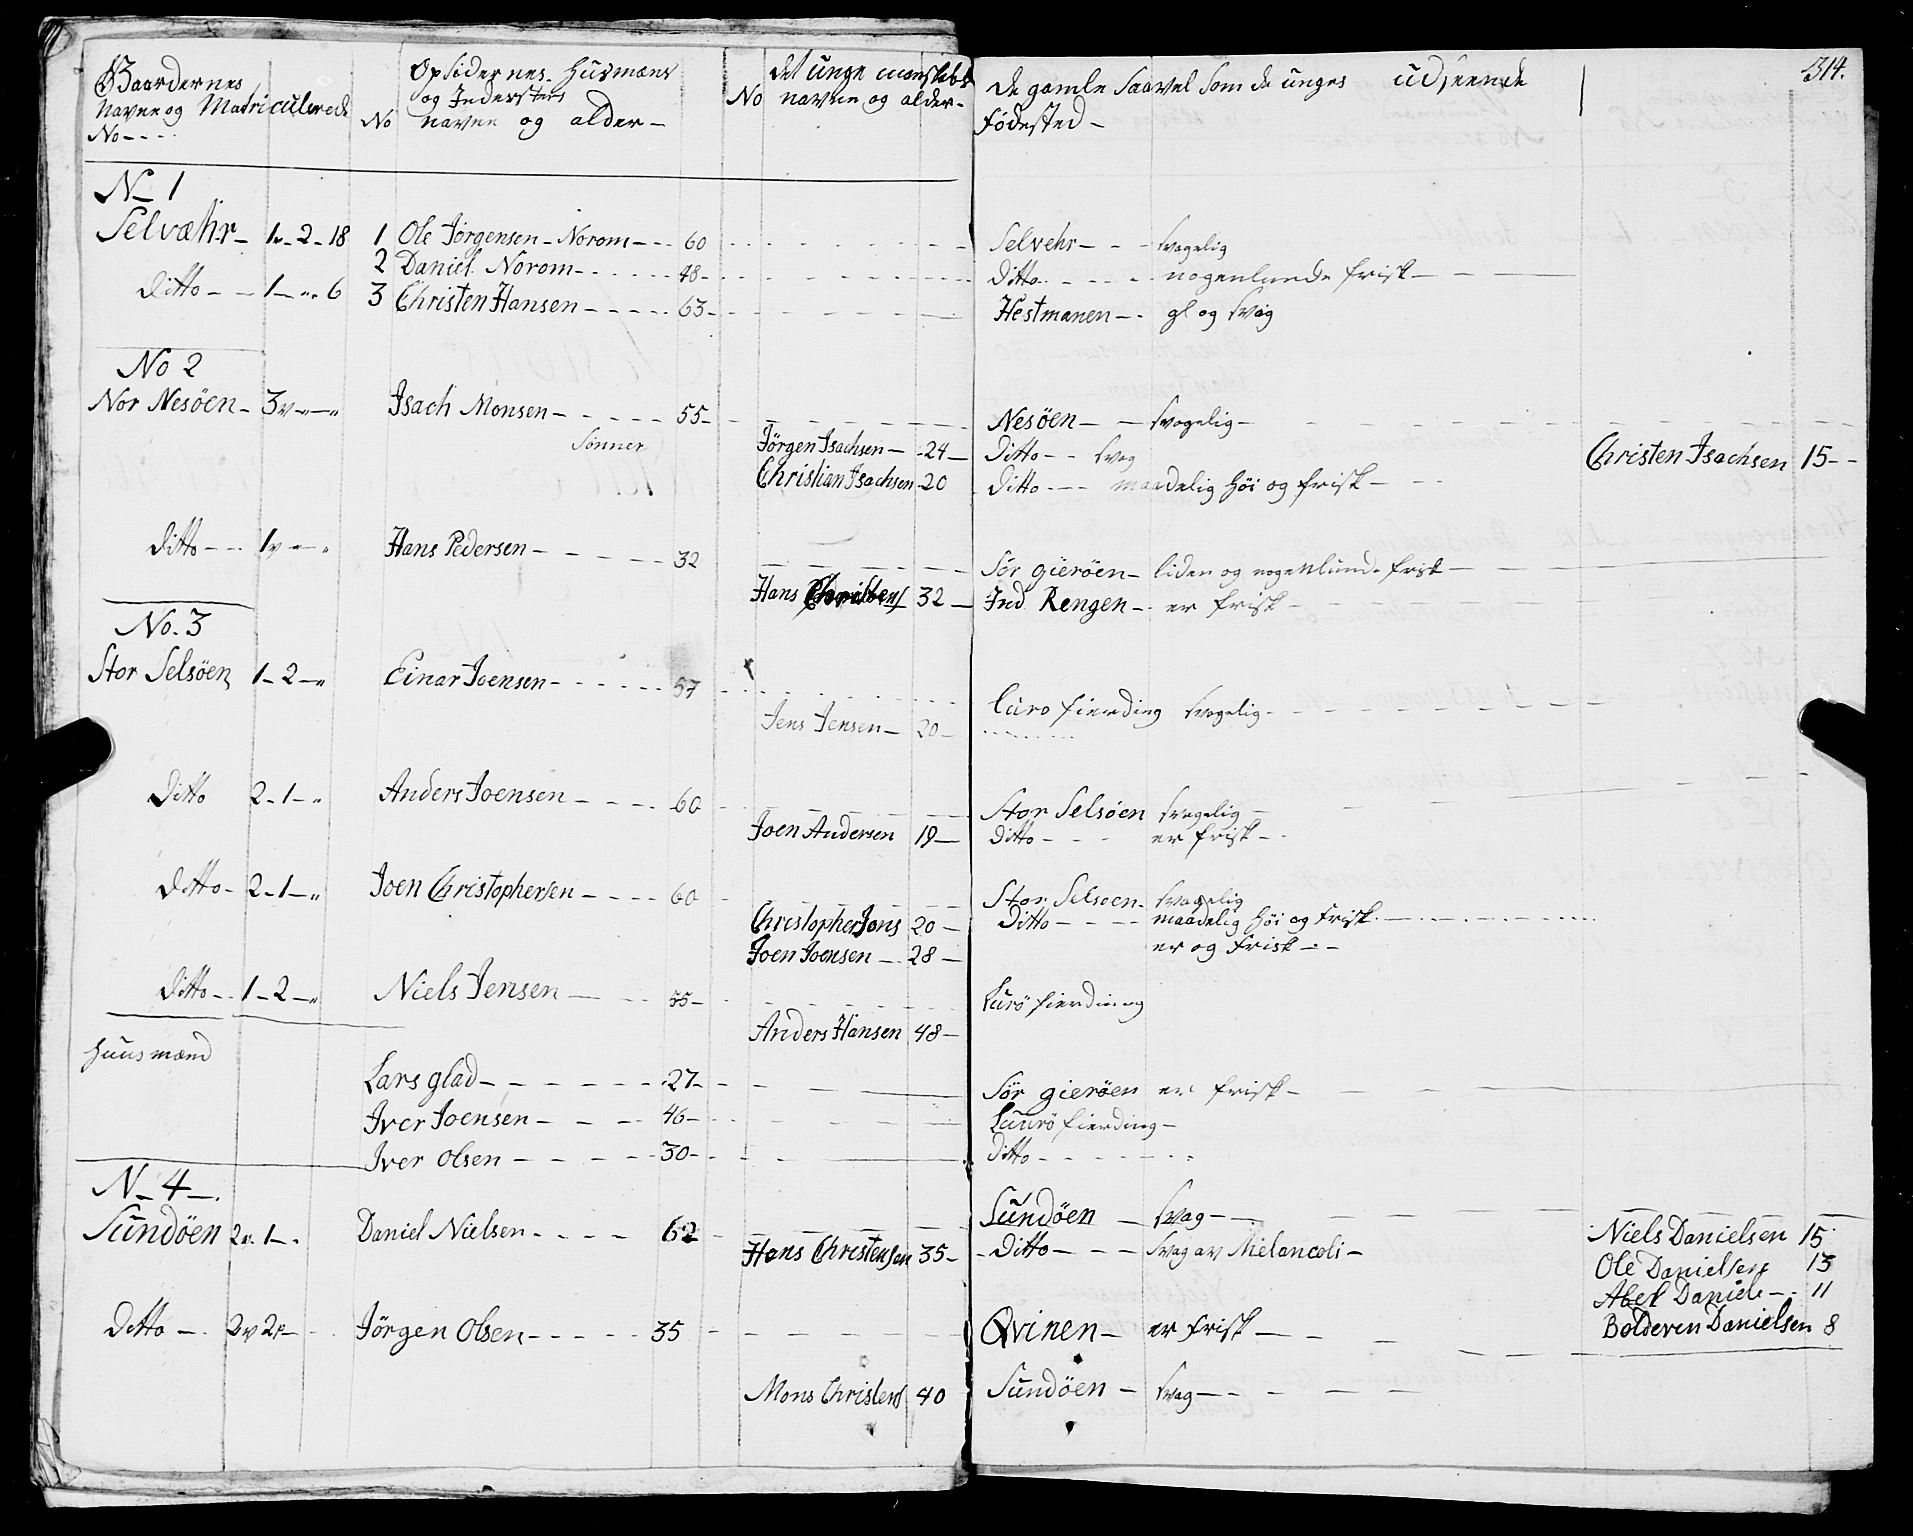 314.
Gaardernes
Navne og Matriculerede
No - - - -
No
Opsidernes, Husmæns
og Indersters
navne og alder -
No
det unge manskabs
navne og alder -
De gamle saavel som de unges udseende
fødested -
No 1
Selvæhr - 1 - 2 - 18 1 Ole Jörgensen - Norom - - - 60 Selvehr - - - svagelig
2 Daniel Norom - - - - - - 48 - Ditto - - - - nogenlunde frisk -
Ditto - - 1 - " 6 3 Christen Hansen - - - - - 63 - Hestmanen - - gl og svag
No 2
Nor Nesöen - 3 v - " - " Isach Monsen - - - - - 55 - Nesöen - - svagelig -
Sönner Jörgen Isachsen - - 24 - Ditto - - svag Christen Isachsen 15 - -
Christian Isachsen 20 Ditto - - - maadelig höi og frisk -
Ditto - - 1 v - " - " Hans Pedersen - - - - - 32 Sör gieröen - liden og nogenlunde frisk -
Hans 32 - Ind Rengen - er frisk -
No. 3
Stor Selsöen 1 - 2 - " Einar Joensen - - - - - - 57 Curo fierding svagelig -
Jens Jensen - 20 -
Ditto 2 - 1 - " Anders Joensen - - - - 60 Stor Selsöen svagelig -
Joen Andersen 19 - Ditto - - - er frisk -
Ditto - 2 - 1 - " Joen Christophersen - - - - 60 Stor Selsoen - svagelig
Christopher Jons 20 - Ditto - - - - maadelig höi og frisk -
Joen Joensen - 28 - er og frisk - -
Ditto - 1 - 2 - " Niels Jensen - - - 35 - Lurö fierding
Anders Hansen 48 -
Huusmænd
Lars glad - - - - - - 27 - Sör gieröen er frisk -
Iver Joensen - - - - 46 - Luurö fierding -
Iver Olsen - - - - - 30 - Ditto - - - - - - -
No 4 -
Sundöen 2 v. 1 - Daniel Nielsen - - - - 62 Sundöen - svag - - Niels Danielsen 15
Hans Christensen 35 - Ditto - - - svag av Melancoli -
Ole Danielsen 13
Abel Daniels - - 11
Ditto - 2 v 2 - Jörgen Olsen - - - - - 35 Qvinen - er frisk - - Bolderen Danielsen 8
Mons Christens 40 Sundöen - svag - -